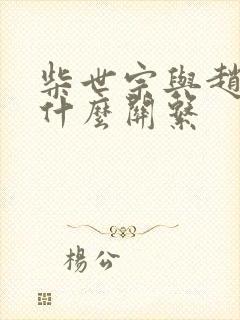 柴世宗與趙
什麼關繫
楊公